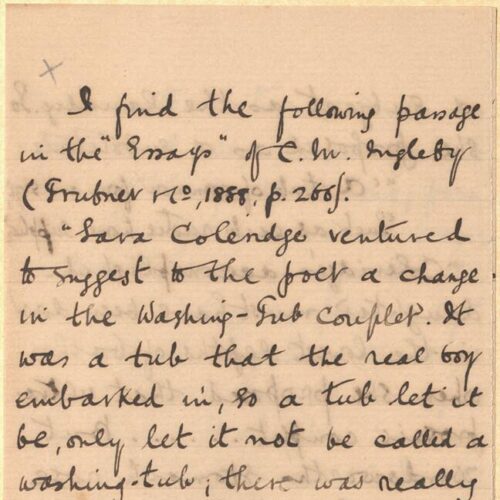 I find the following passage
in the "Essays" of C. M. Ingleby
(Trubner & Co, 1888, p. 266).
"Sara Coleridge ventured
to suggest to the poet a change
in the Washing-Tub couplet. It
was a tub that the real boy
embarked in, so a tub let it
be, only let it not be called a
washing-tub; there was really